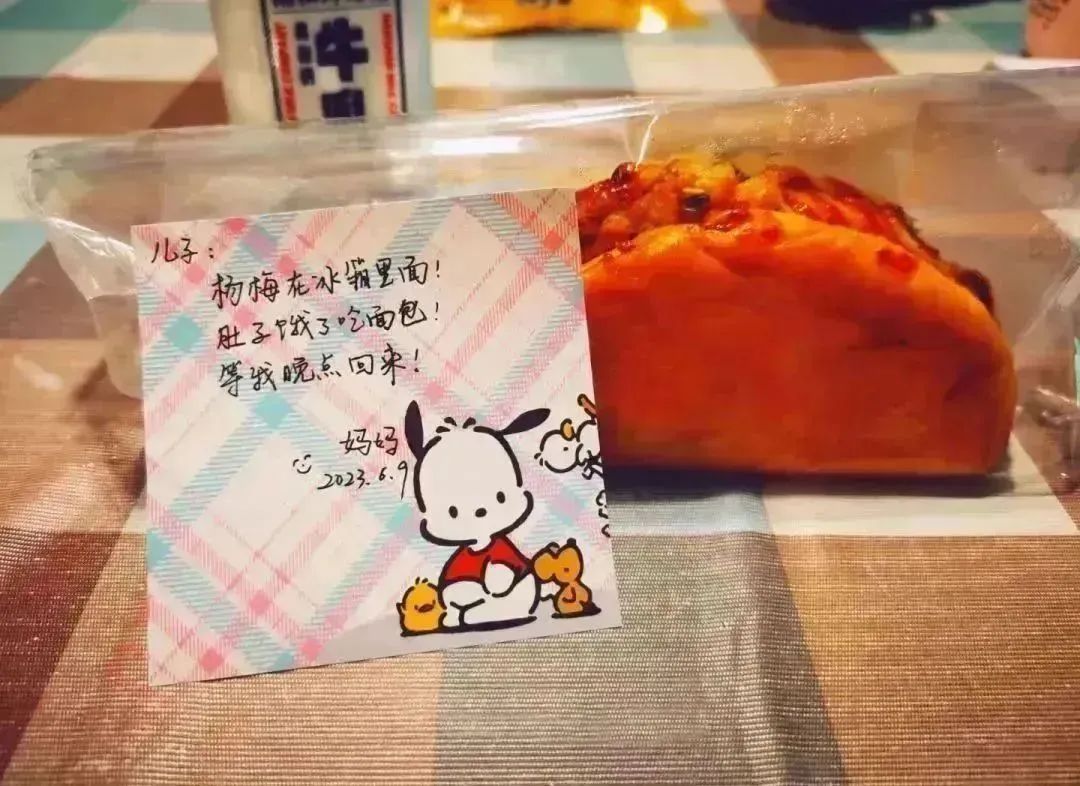 牛
儿子：
杨梅在冰箱里面！
肚子饿了吃面包！
等我晚点回来！
妈妈
2023.6.9